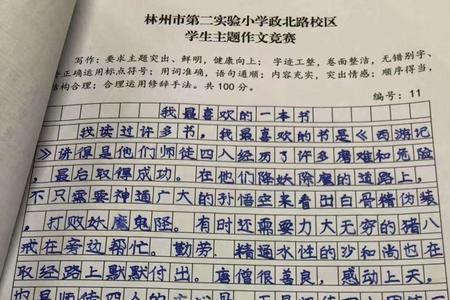 林州市第二实验小学政北路校区
学生主题作文竞赛
写作:要求主题突出、鲜明,健康向上; 字迹工整,卷面整洁,无错别字、
正确运用标点符号;用词准确,语句通顺;内容充实,突出情感;顺序得当,
结构合理;合理运用修辞手法。共 100 分。
编号:11
我最喜欢的一本书
我读过许多书,我最喜欢的书是《西游记
》讲得是他们师徒四人经历了许多磨难和危险
,最后取得成功。在他们降妖除魔的道路上,
不只需要神通广大的孙悟空来看出白骨精伪装
,打败妖魔鬼怪。有时还需要力大无穷的猪八
戒在旁边帮忙。勤劳。精通水性的沙和尚也在
取经路上默默付出。唐僧很善良,感动上天。
也是师徒四人的